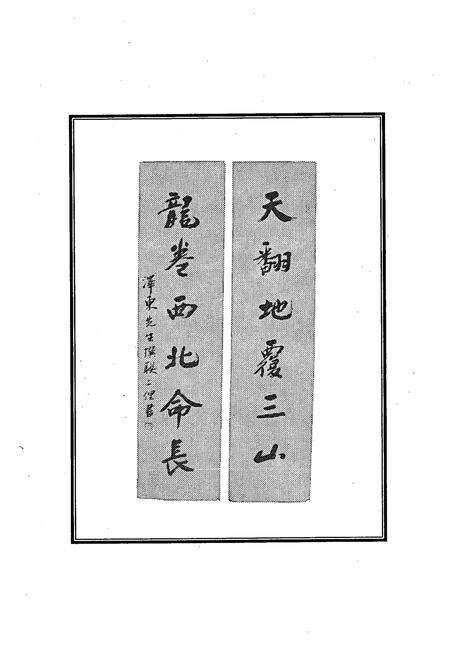 天翻地覆三山
龍卷西北命長
澤東先生撰聯